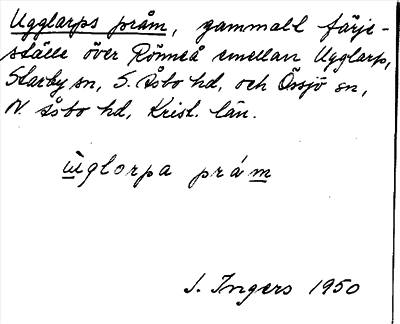 Ugglarps pråm, gammalt färje-
ställe över Rönneå emellan Ugglarp,
Starby sn, S. Åsbo hd, och Össjö sn,
N. Åsbo hd, Krist. län.
ùglorpa prám
J. Ingers 1950